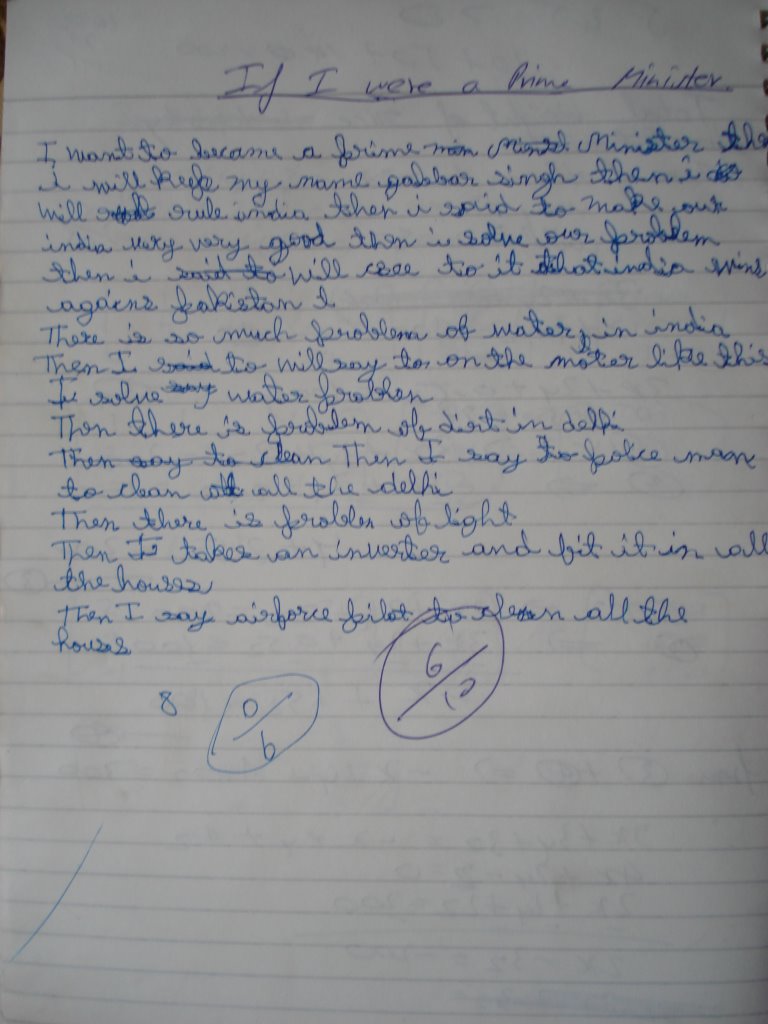 If I were a Prime Minister.
I want to became a prime Minister then
i will keep my name gabbar singh then i
will rule india then i said to make our
india very very good then i solve our problem
then i said to will see to it that india wins
agains pakistan 1
There is so much problem of water in india
Then I said to will say to on the moter like this
I solve say water problen
Then there is problem of dirt in delhi
Then say to clean Then I say to police man
to clean all the delhi
Then there is problen of light
Then I takes an inverter and fit it in all
the houses
Then I say airforce pilot to clean all the
houses
6/10
8 0/6